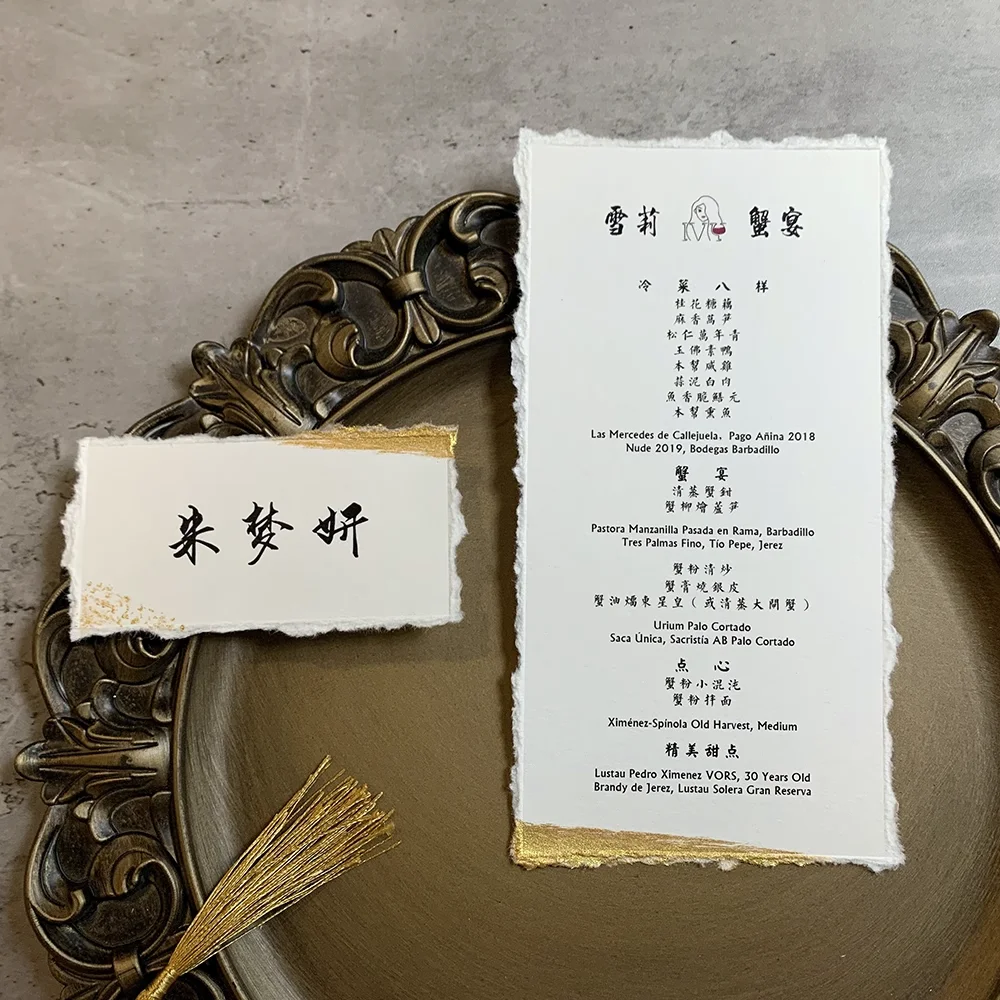 朱梦妍
雪莉 蟹宴
冷菜八样
桂花糖藕
麻香萵笋
松仁萬年青
玉佛素鴨
本幫咸雞
蒜泥白肉
魚香脆鱔元
本幫熏魚
Las Mercedes de Callejuela, Pago Añina 2018
Nude 2019, Bodegas Barbadillo
蟹宴
清蒸蟹鉗
蟹柳燴蘆笋
Pastora Manzanilla Pasada en Rama, Barbadillo
Tres Palmas Fino, Tío Pepe, Jerez
蟹粉清炒
蟹膏燒銀皮
蟹油燭東星皇(或清蒸大閘蟹)
Urium Palo Cortado
Saca Única, Sacristía AB Palo Cortado
点心
蟹粉小混沌
蟹粉拌面
Ximénez-Spínola Old Harvest, Medium
精美甜点
Lustau Pedro Ximenez VORS, 30 Years Old
Brandy de Jerez, Lustau Solera Gran Reserva